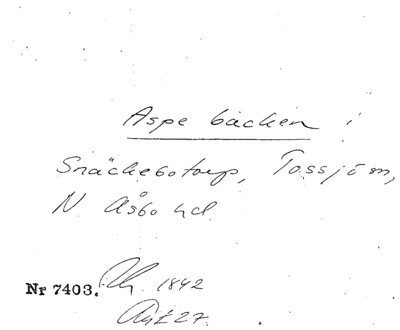 Aspe bäcken i
Snäckebotorp, Tossjöm,
N Åsbo hd
Nr 7403. 1842
Akt 27.